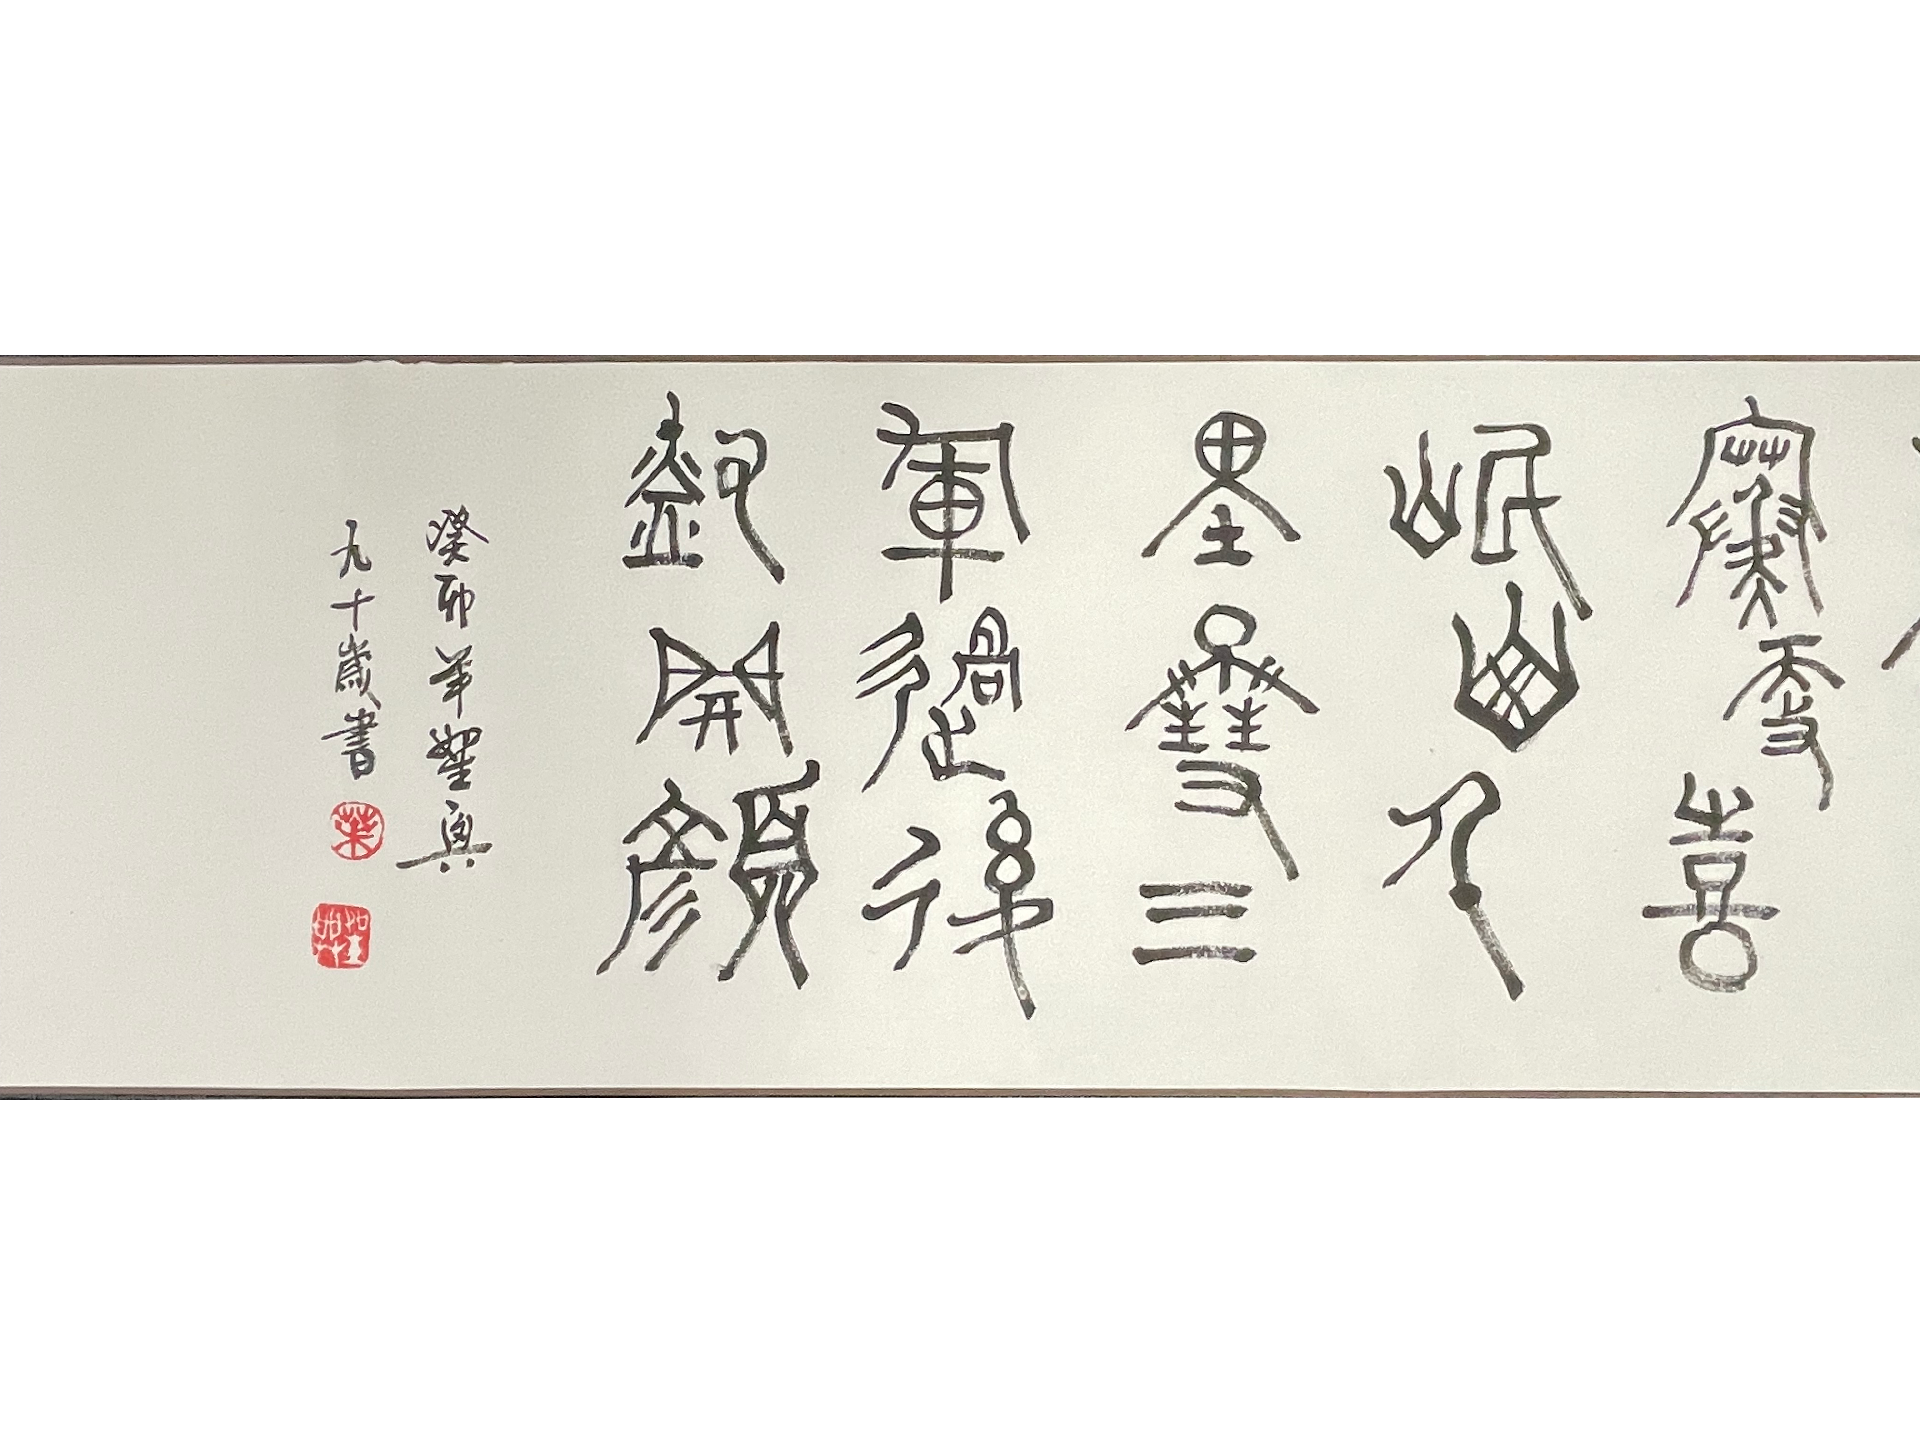 寒更喜
岷山千
里雪三
軍過後
盡開顏
癸卯
九十歲書